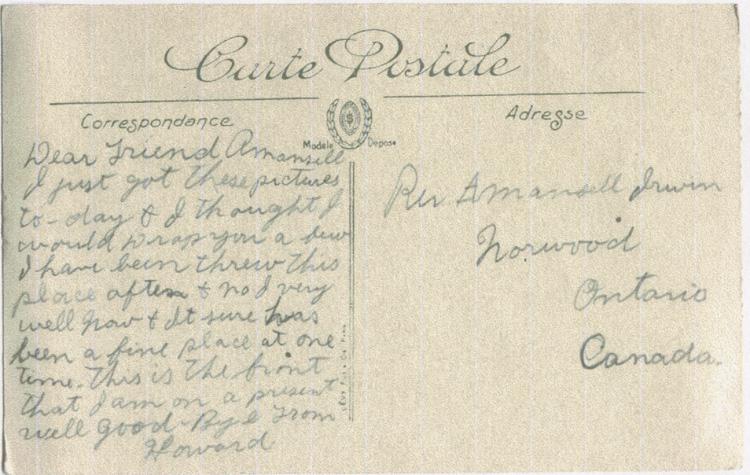 Carte Postale
Correspondance
Adresse
Modèle Déposé
Dear Friend Amansell
I just got these pictures
to-day & I thought I
would drop you a few
I have been threw this
place often & no I very
well now & It sure has
been a fine place at one
time. This is the front
that I am on a present
well good-Bye From
Howard
Rev Amansell Irwin
Norwood
Ontario
Canada.